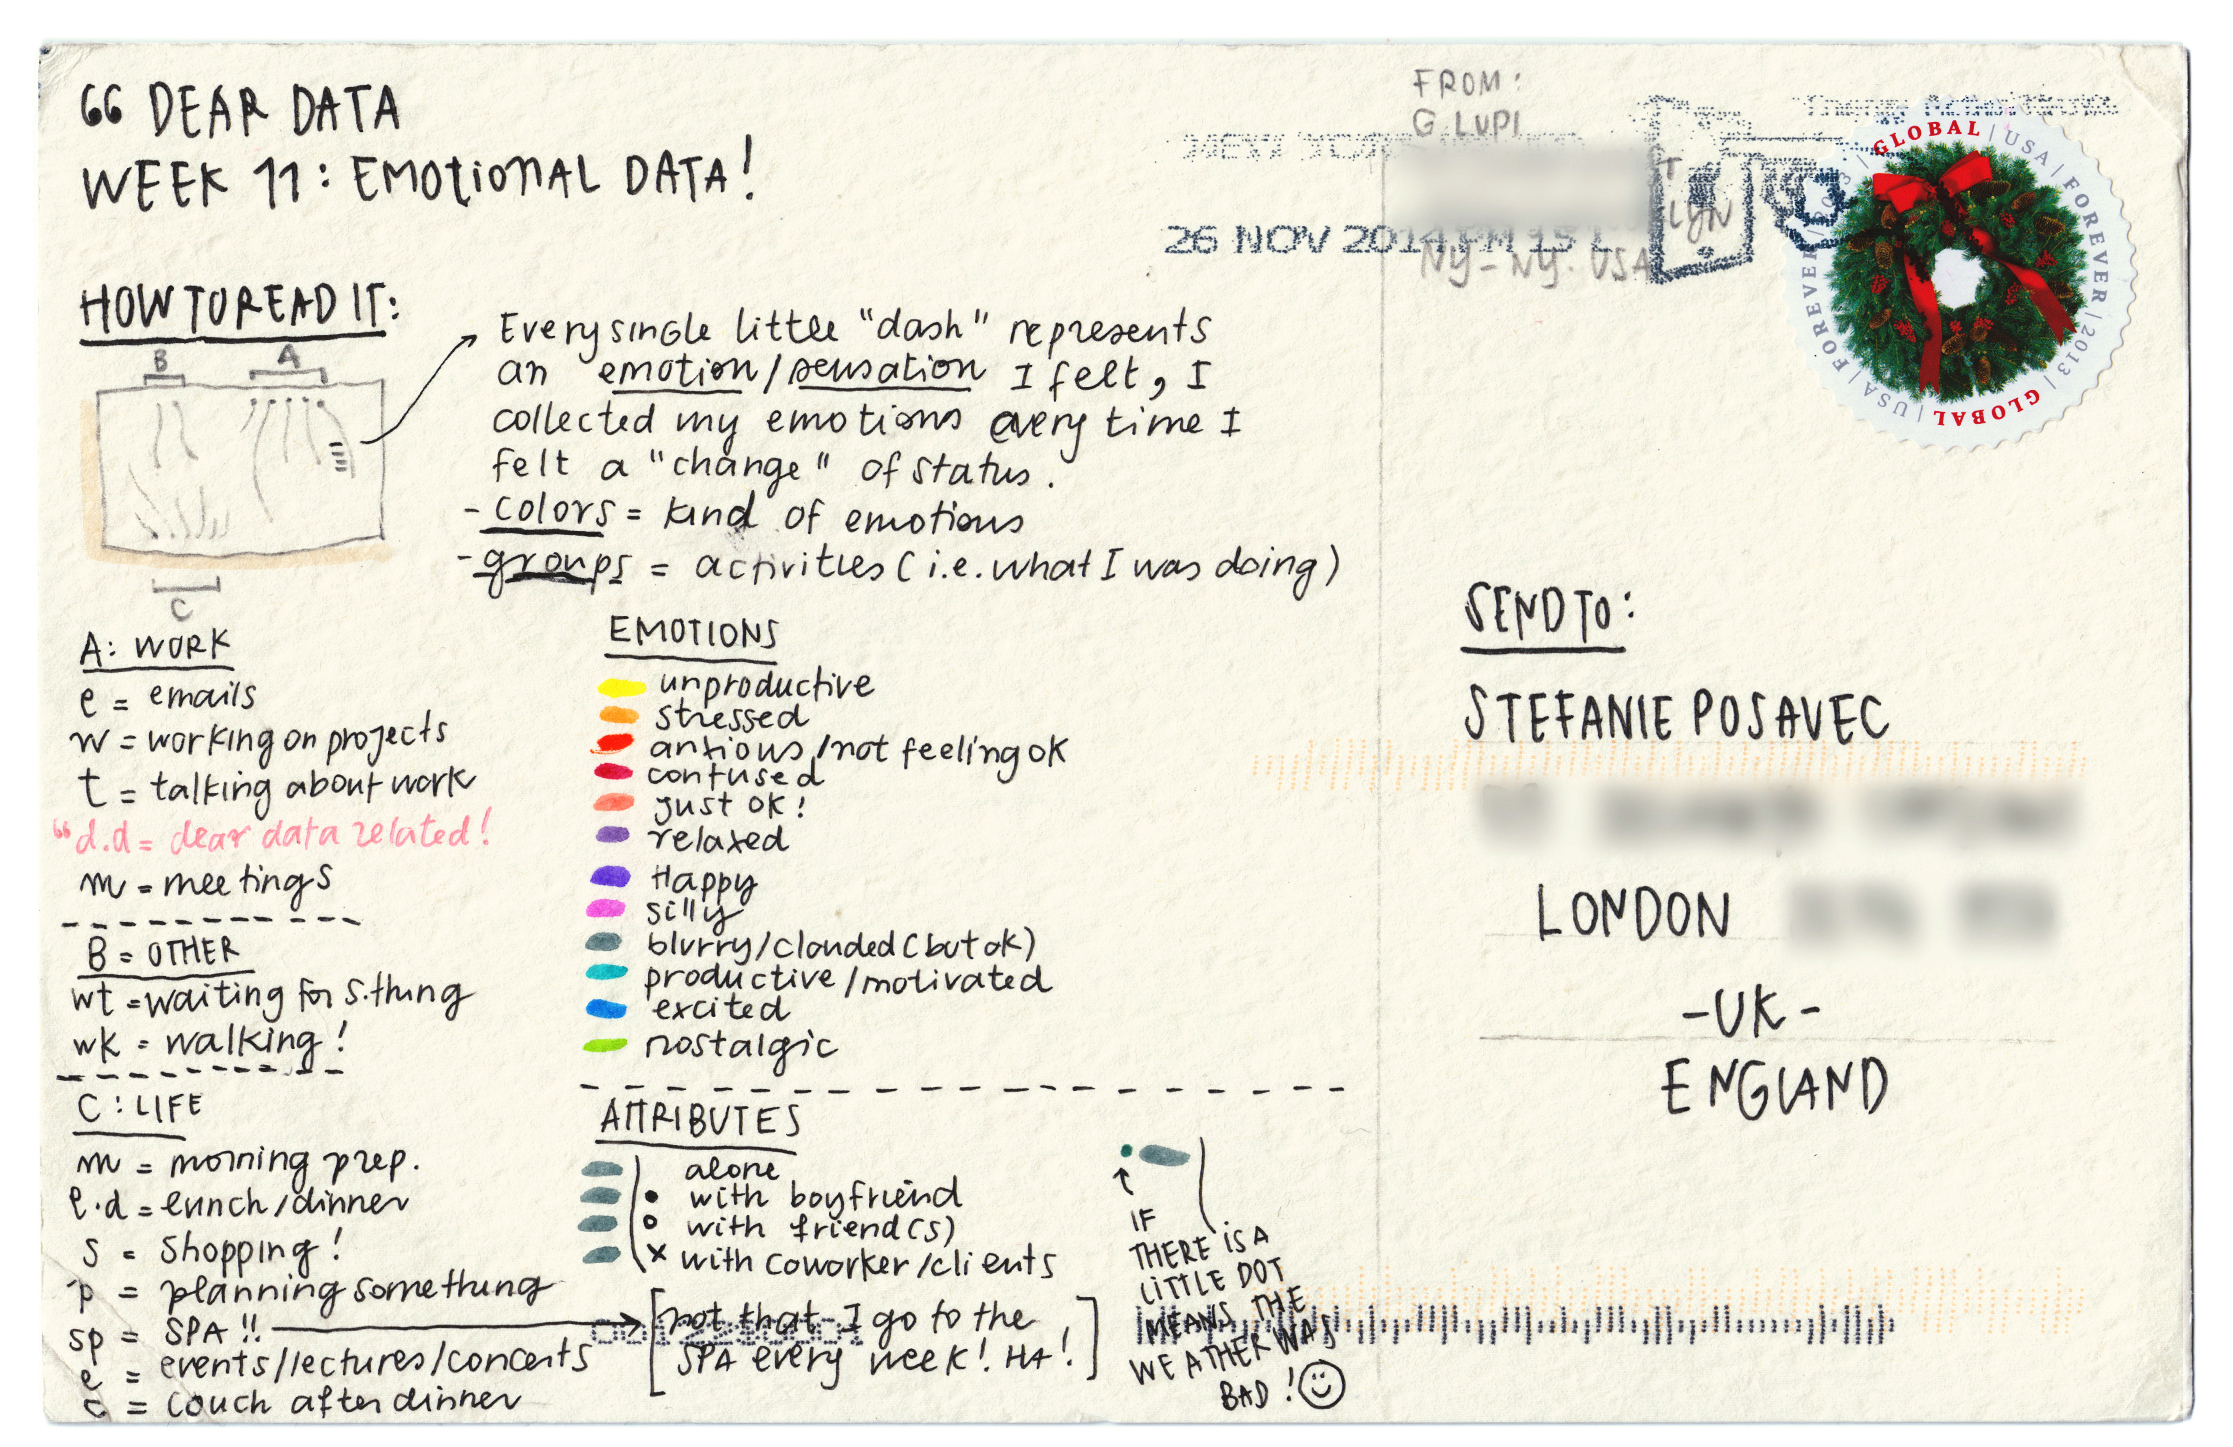 “ DEAR DATA
WEEK 11: EMOTIONAL DATA!
HOW TO READ IT:
B A
C
Every single little "dash" represents
an emotion/sensation I felt, I
collected my emotions every time I
felt a "change" of status.
- colors = kind of emotions
- groups = activities (i.e. what I was doing)
A: WORK
e = emails
w = working on projects
t = talking about work
“d.d = dear data related!
m = meetings
B = OTHER
wt = waiting for s.thing
wk = walking!
C: LIFE
m = morning prep.
l.d = lunch/dinner
s = shopping!
p = planning something
sp = SPA!!
e = events/lectures/concerts
c = couch after dinner
EMOTIONS
unproductive
stressed
anxious/not feeling ok
confused
just ok!
relaxed
Happy
silly
blurry/clouded (but ok)
productive/motivated
excited
nostalgic
ATTRIBUTES
alone
with boyfriend
with friend(s)
x with coworker/clients
[not that I go to the
SPA every week! HA!]
IF
THERE IS A
LITTLE DOT
MEANS THE
WEATHER WAS
BAD!
FROM:
G. LUPI
LYN
NY - NY. USA
26 NOV 2014 PM
GLOBAL | USA | FOREVER | 2013 | GLOBAL | USA | FOREVER | 2013 |
SEND TO:
STEFANIE POSAVEC
LONDON
-UK-
ENGLAND